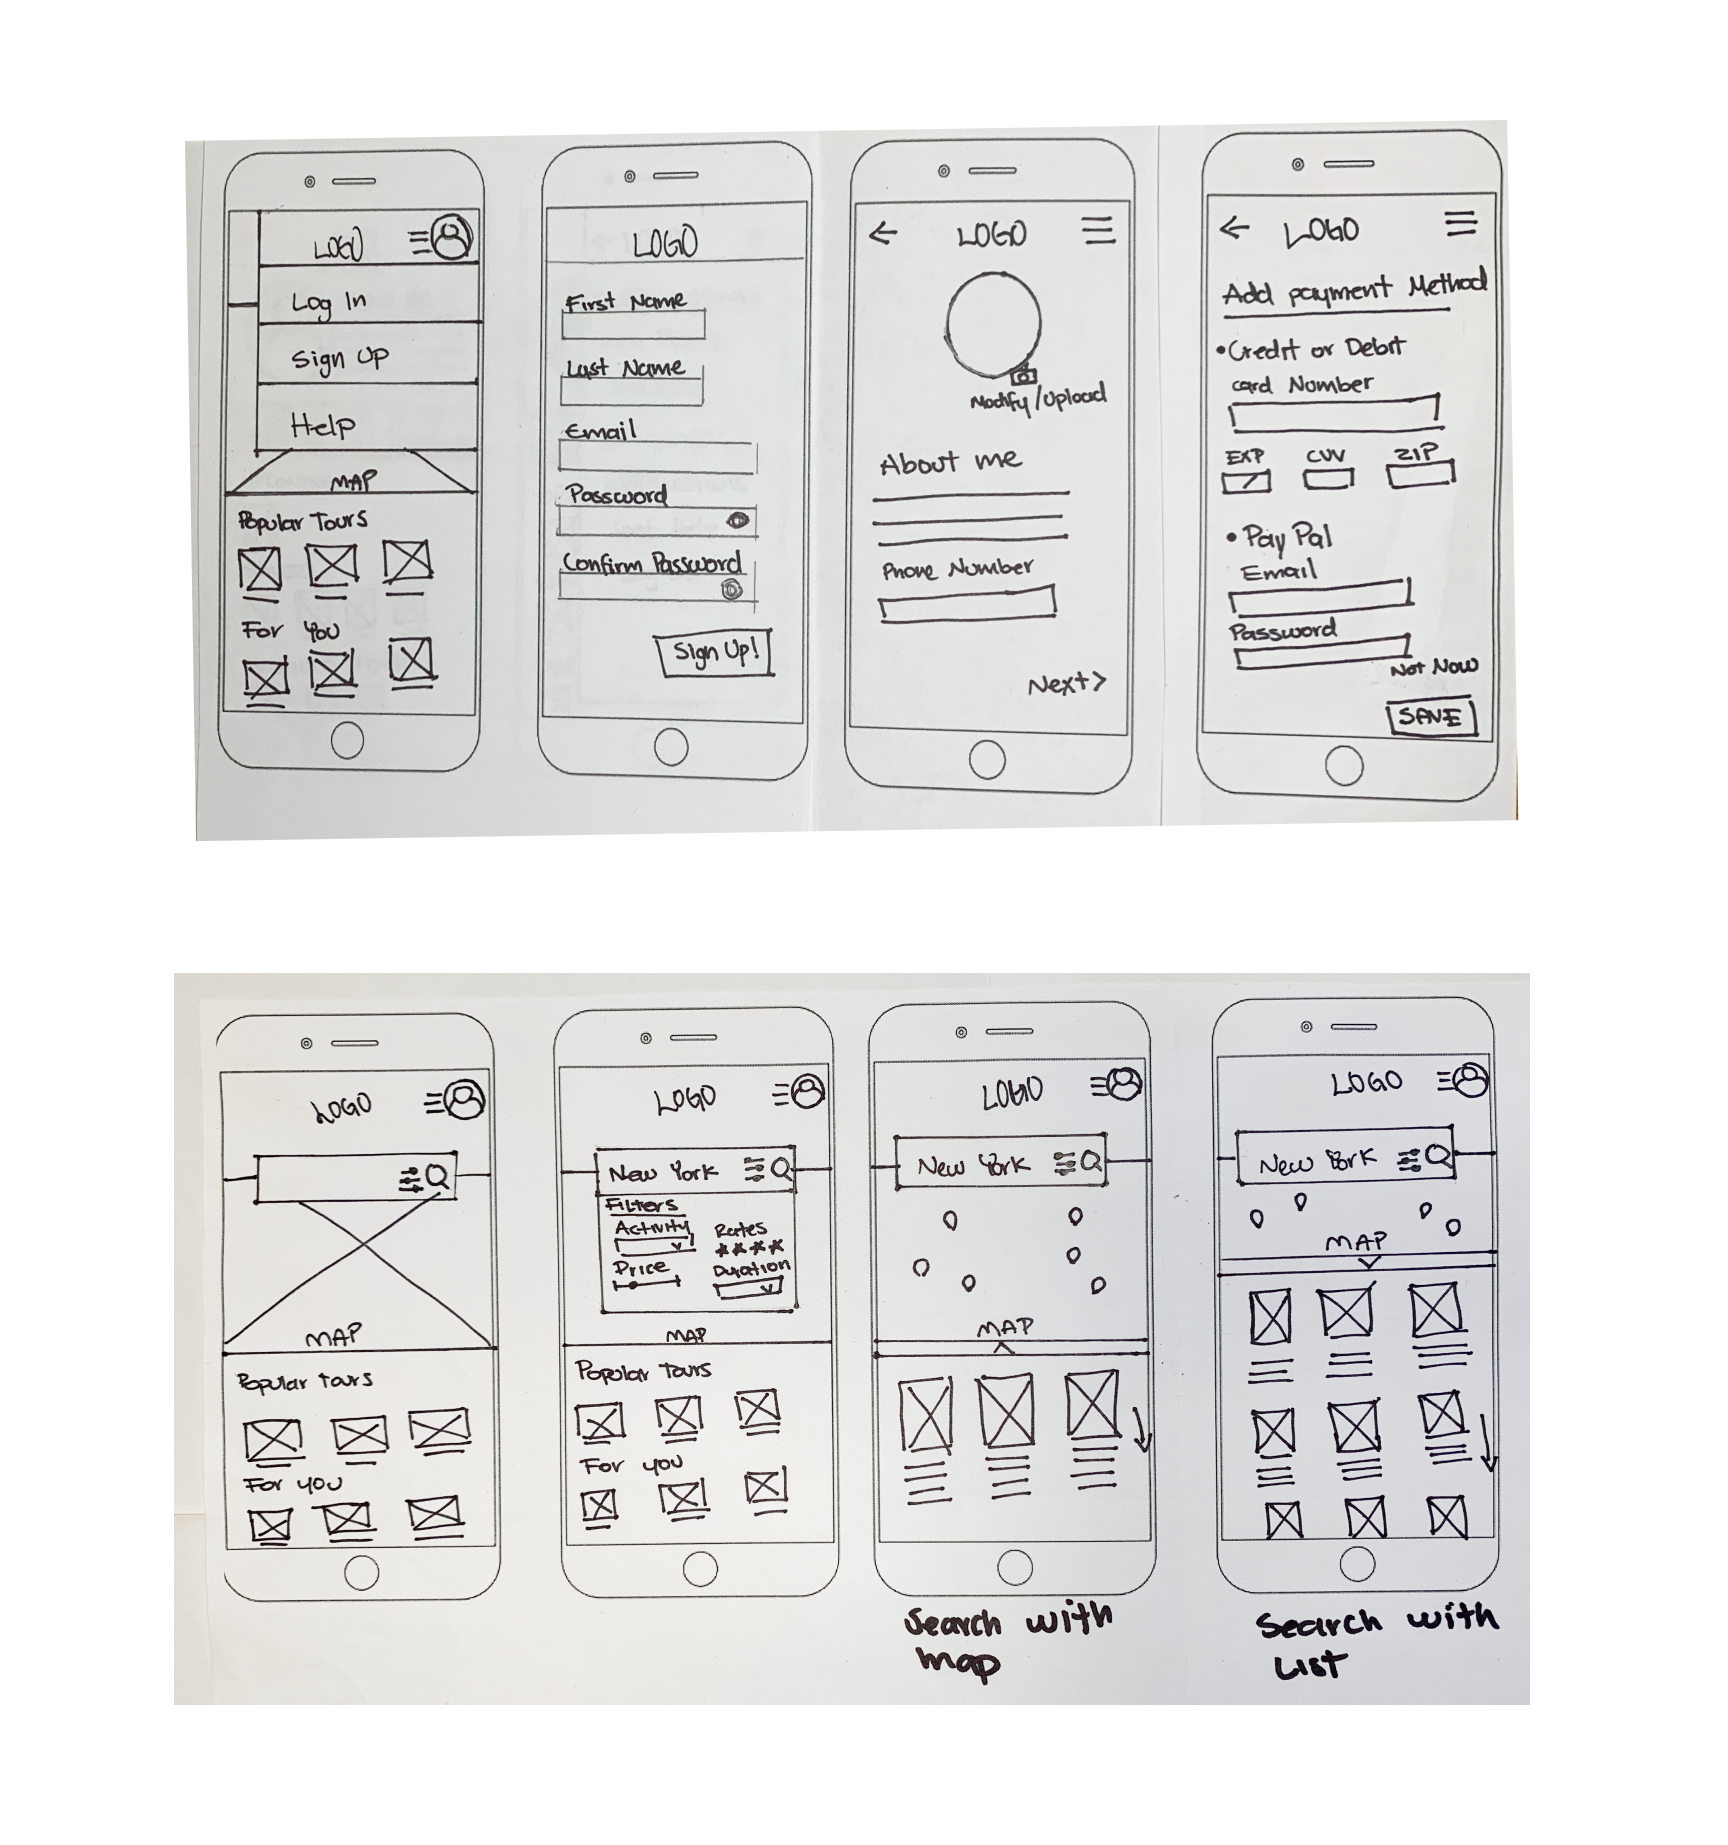 LOGO
Log In
Sign Up
Help
MAP
Popular Tours
For You
LOGO
First Name
Last Name
Email
Password
Confirm Password
Sign Up!
LOGO
Modify/Upload
About me
Phone Number
Next>
LOGO
Add payment Method
•Credit or Debit
card Number
EXP CVV ZIP
•Pay Pal
Email
Password
Not Now
SAVE
LOGO
MAP
Popular tours
For you
LOGO
New York
Filters
Activity Rates
Price Duration
MAP
Popular Tours
For you
LOGO
New York
MAP
Search with
map
LOGO
New York
MAP
Search with
List